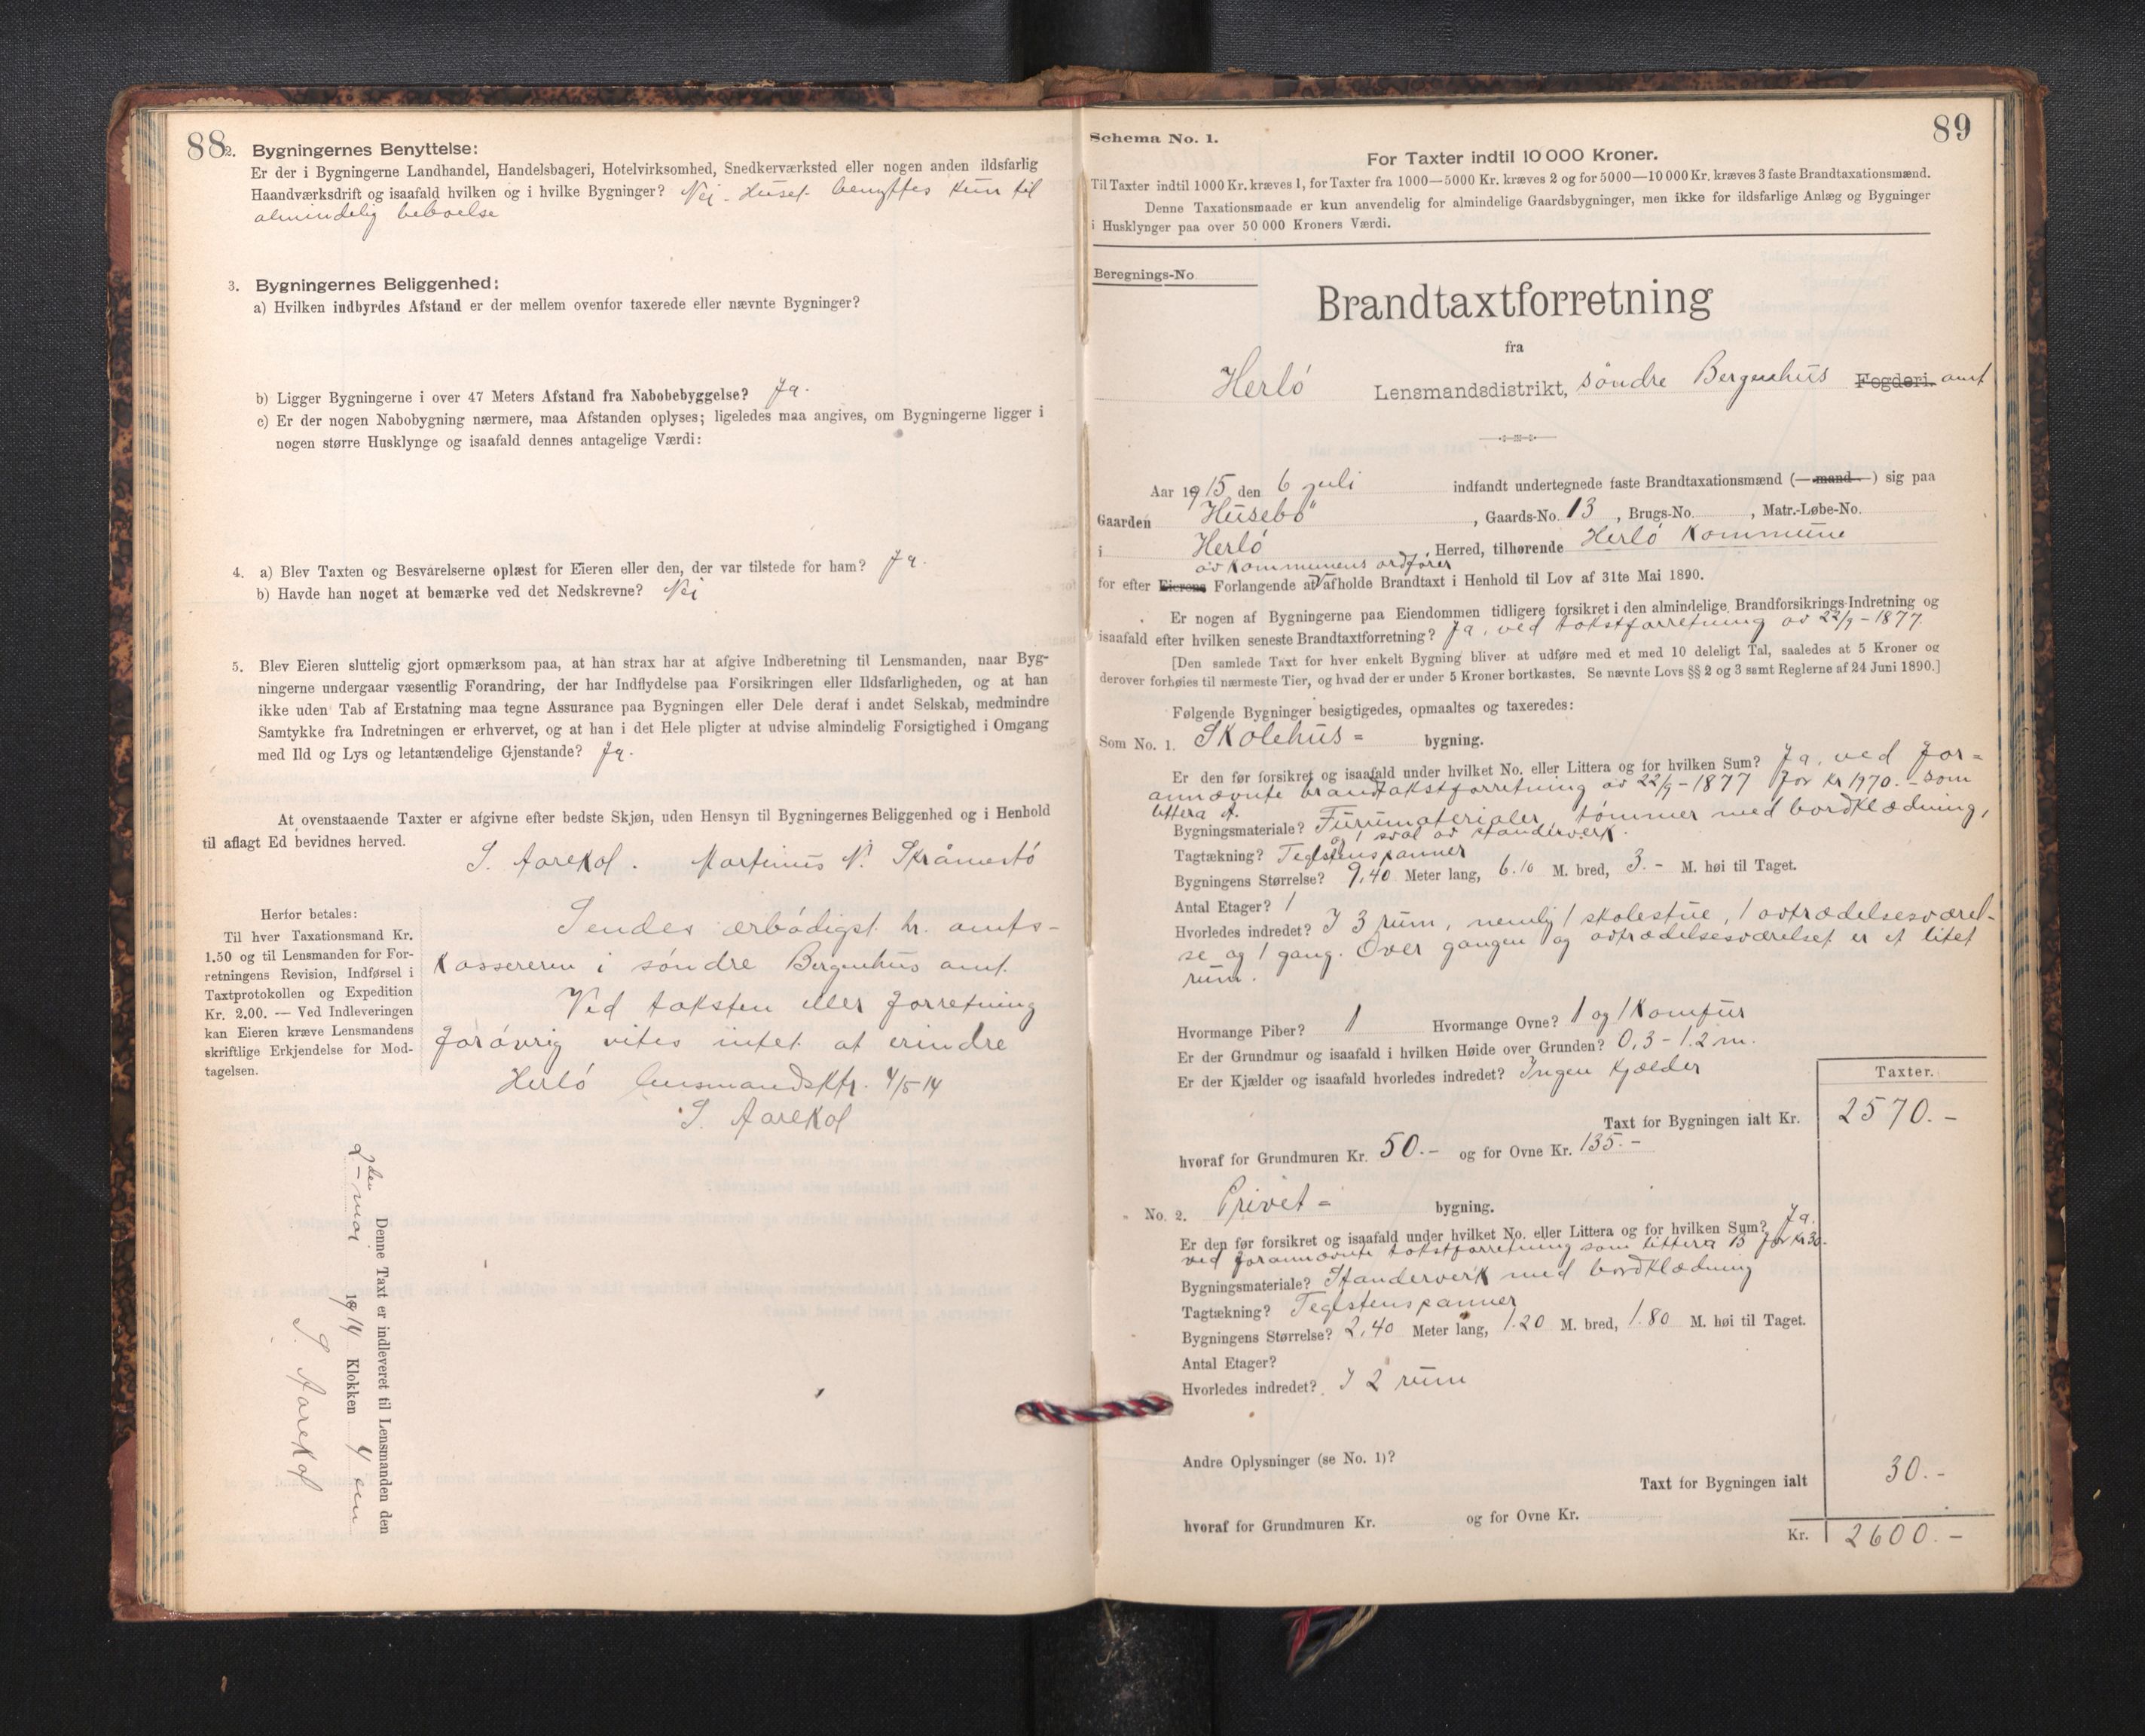 88
2. Bygningernes Benyttelse:
Er der i Bygningerne Landhandel, Handelsbageri, Hotelvirksomhed, Snedkerværksted eller nogen anden ildsfarlig
Haandværksdrift og isaafald hvilken og i hvilke Bygninger? Nei. Huset benyttes kun til
almindelig beboelse
3. Bygningernes Beliggenhed:
a) Hvilken indbyrdes Afstand er der mellem ovenfor taxerede eller nævnte Bygninger?
b) Ligger Bygningerne i over 47 Meters Afstand fra Nabobebyggelse? Ja.
c) Er der nogen Nabobygning nærmere, maa Afstanden oplyses; ligeledes maa angives, om Bygningerne ligger i
nogen større Husklynge og isaafald dennes antagelige Værdi:
4. a) Blev Taxten og Besvarelserne oplæst for Eieren eller den, der var tilstede for ham? Ja.
b) Havde han noget at bemærke ved det Nedskrevne? Nei
5. Blev Eieren sluttelig gjort opmærksom paa, at han strax har at afgive Indberetning til Lensmanden, naar Byg-
ningerne undergaar væsentlig Forandring, der har Indflydelse paa Forsikringen eller Ildsfarligheden, og at han
ikke uden Tab af Erstatning maa tegne Assurance paa Bygningen eller Dele deraf i andet Selskab, medmindre
Samtykke fra Indretningen er erhvervet, og at han i det Hele pligter at udvise almindelig Forsigtighed i Omgang
med Ild og Lys og letantændelige Gjenstande? Ja.
At ovenstaaende Taxter er afgivne efter bedste Skjøn, uden Hensyn til Bygningernes Beliggenhed og i Henhold
til aflagt Ed bevidnes herved.
S. Aarekol. Martinus N. Skråmestö
Herfor betales:
Til hver Taxationsmand Kr.
1.50 og til Lensmanden for For-
retningens Revision, Indførsel i
Taxtprotokollen og Expedition
Kr. 2.00. — Ved Indleveringen
kan Eieren kræve Lensmandens
skriftlige Erkjendelse for Mod-
tagelsen.
Sendes ærbödigst hr. amts-
kassereren i söndre Bergenhus amt.
Ved taksten eller forretning
forövrig vites intet at erindre
Herlö lensmandsktr. 4/5 14
S. Aarekol
Denne Taxt er indleveret til Lensmanden den
2den mai 1914 Klokken 4 em
S. Aarekol
89
Schema No. 1.
For Taxter indtil 10 000 Kroner.
Til Taxter indtil 1000 Kr. kræves 1, for Taxter fra 1000—5000 Kr. kræves 2 og for 5000—10 000 Kr. kræves 3 faste Brandtaxationsmænd.
Denne Taxationsmaade er kun anvendelig for almindelige Gaardsbygninger, men ikke for ildsfarlige Anlæg og Bygninger
i Husklynger paa over 50 000 Kroners Værdi.
Beregnings-No
Brandtaxtforretning
fra
Herlö Lensmandsdistrikt, söndre Bergenhus Fogderi. amt
Aar 1915 den 6 juli indfandt undertegnede faste Brandtaxationsmænd (—mand—) sig paa
Gaarden Husebö, Gaards-No. 13, Brugs-No. , Matr.-Løbe-No.
i Herlö Herred, tilhørende Herlö Kommune
av kommunens ordförer
for efter Eierens Forlangende at afholde Brandtaxt i Henhold til Lov af 31te Mai 1890.
Er nogen af Bygningerne paa Eiendommen tidligere forsikret i den almindelige Brandforsikrings-Indretning og
isaafald efter hvilken seneste Brandtaxtforretning? Ja, ved takstforretning av 22/9-1877.
[Den samlede Taxt for hver enkelt Bygning bliver at udføre med et med 10 deleligt Tal, saaledes at 5 Kroner og
derover forhøies til nærmeste Tier, og hvad der er under 5 Kroner bortkastes. Se nævnte Lovs §§ 2 og 3 samt Reglerne af 24 Juni 1890.]
Følgende Bygninger besigtigedes, opmaaltes og taxeredes:
Som No. 1. Skolehus= bygning.
Er den før forsikret og isaafald under hvilket No. eller Littera og for hvilken Sum? Ja, ved for=
annævnte brandtakstforretning av 22/9-1877 for kr 1970.- som
littera A.
Bygningsmateriale? Furumaterialer, tömmer med bordklædning,
og 1 sval av standerverk.
Tagtækning? Teglstenspanner
Bygningens Størrelse? 9,40 Meter lang, 6.10 M. bred, 3.- M. høi til Taget.
Antal Etager? 1
Hvorledes indredet? I 3 rum, nemlig 1 skolestue, 1 avtrædelsesværel-
se og 1 gang. Over gangen og avtrædelsesværelset er et litet
rum.
Hvormange Piber? 1 Hvormange Ovne? 1 og 1 Komfur
Er der Grundmur og isaafald i hvilken Høide over Grunden? 0,3-1.2 m.
Er der Kjælder og isaafald hvorledes indredet? Ingen Kjælder
Taxter.
Taxt for Bygningen ialt Kr. 2570.-
hvoraf for Grundmuren Kr. 50.- og for Ovne Kr. 135.-
No. 2. Privet= bygning.
Er den før forsikret og isaafald under hvilket No. eller Littera og for hvilken Sum? Ja.
ved forannævnte takstforretning som littera B for kr 30.
Bygningsmateriale? Standerverk med bordklædning
Tagtækning? Teglstenspanner
Bygningens Størrelse? 2,40 Meter lang, 1.20 M. bred, 1.80 M. høi til Taget.
Antal Etager?
Hvorledes indredet? I 2 rum
Andre Oplysninger (se No. 1)?
Taxt for Bygningen ialt 30.-
hvoraf for Grundmuren Kr. og for Ovne Kr.
Kr. 2600.-